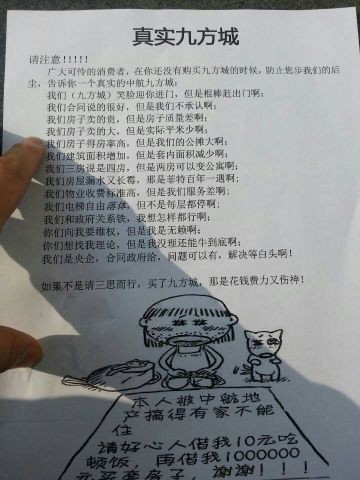 真实九方城
请注意!!!!!
广大可怜的消费者，在你还没有购买九方城的时候，防止您步我们的后
尘，告诉你一个真实的中航九方城；
我们（九方城）笑脸迎你进门，但是棍棒赶出门啊；
我们合同说的很好，但是我们不承认啊；
我们房子卖的贵，但是房子质量差啊；
我们房子卖的大，但是实际平米少啊；
我们房子得房率高，但是我们的公摊大啊；
我们建筑面积增加，但是套内面积减少啊；
我们三房说是四房，但是两房可以变公寓啊；
我们房屋漏水又长霉，那是菲特百年一遇啊；
我们物业收费标准高，但是我们服务差啊；
我们电梯自由落体，但不是每层都停啊；
我们和政府关系铁，我想怎样都行啊；
你们向我要维权，但是我是无赖啊；
你们想找我理论，但是我没理还能牛到底啊；
我们是央企，合同政府给，问题可以有，解决等白头啊！
如果不是请三思而行，买了九方城，那是花钱费力又伤神！
本人被中航地
产搞得有家不能
住
请好心人借我10元吃
顿饭，再借我1000000
元买套房子，谢谢!!!